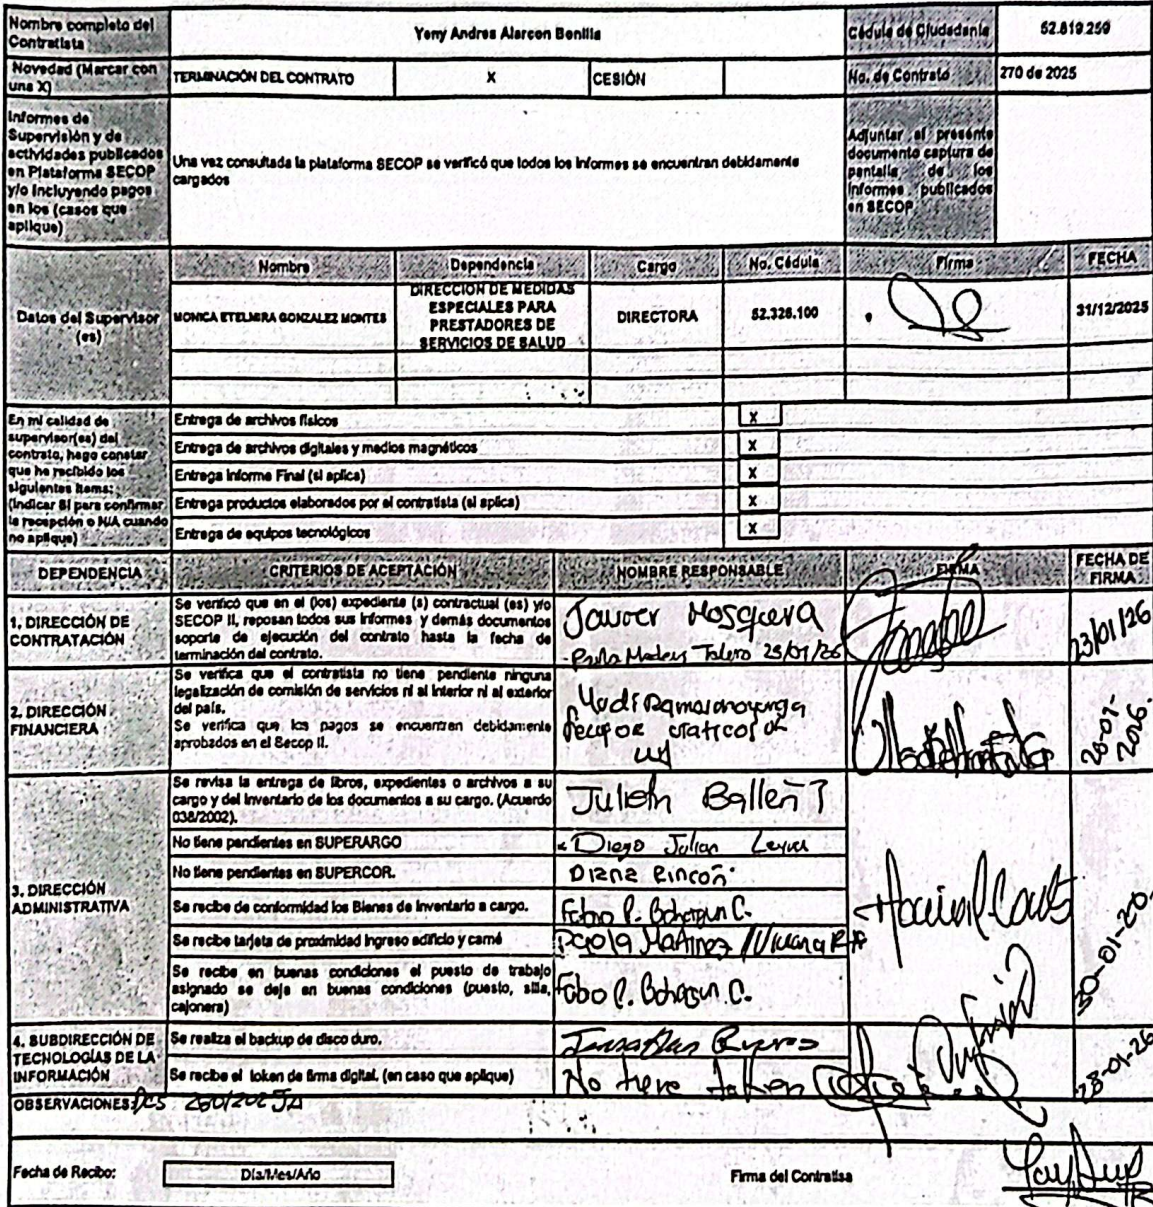 Nombre completo del Contratista
Yeny Andrea Alarcon Bonilla
Cédula de Ciudadanía
52.819.259
Novedad (Marcar con una X)
TERMINACIÓN DEL CONTRATO
X
CESIÓN
No. de Contrato
270 de 2025
Informes de Supervisión y de actividades publicados en Plataforma SECOP y/o Incluyendo pagos en los (casos que aplique)
Una vez consultada la plataforma SECOP se verificó que todos los informes se encuentran debidamente cargados
Adjuntar el presente documento captura de pantalla de los informes publicados en SECOP
Datos del Supervisor (es)
Nombre
Dependencia
Cargo
No. Cédula
Firma
FECHA
MONICA ETELMIRA GONZALEZ MONTES
DIRECCION DE MEDIDAS ESPECIALES PARA PRESTADORES DE SERVICIOS DE SALUD
DIRECTORA
52.326.100
31/12/2025
En mi calidad de supervisor(es) del contrato, hago constar que he recibido los siguientes items: (Indicar SI para confirmar la recepción o N/A cuando no aplique)
Entrega de archivos físicos
X
Entrega de archivos digitales y medios magnéticos
X
Entrega Informe Final (si aplica)
X
Entrega productos elaborados por el contratista (si aplica)
X
Entrega de equipos tecnológicos
X
DEPENDENCIA
CRITERIOS DE ACEPTACIÓN
NOMBRE RESPONSABLE
FIRMA
FECHA DE FIRMA
1. DIRECCIÓN DE CONTRATACIÓN
Se verificó que en el (los) expediente (s) contractual (es) y/o SECOP II, reposan todos sus informes y demás documentos soporte de ejecución del contrato hasta la fecha de terminación del contrato.
Javier Mosquera
23/01/26
23/01/26
2. DIRECCIÓN FINANCIERA
Se verifica que el contratista no tiene pendiente ninguna legalización de comisión de servicios ni al interior ni al exterior del país.
Se verifica que los pagos se encuentren debidamente aprobados en el Secop II.
3. DIRECCIÓN ADMINISTRATIVA
Se revisa la entrega de libros, expedientes o archivos a su cargo y del Inventario de los documentos a su cargo. (Acuerdo 038/2002).
No tiene pendientes en SUPERARGO
Diego Julian
No tiene pendientes en SUPERCOR.
Diana Rincón
Se recibe de conformidad los Bienes de Inventario a cargo.
Se recibe tarjeta de proximidad ingreso edificio y carné
Paola Martinez
Se recibe en buenas condiciones el puesto de trabajo asignado se deja en buenas condiciones (puesto, silla, cajonera)
4. SUBDIRECCIÓN DE TECNOLOGÍAS DE LA INFORMACIÓN
Se realiza el backup de disco duro.
Se recibe el token de firma digital. (en caso que aplique)
No tiene
28-01-26
OBSERVACIONES:
Fecha de Recibo:
Día/Mes/Año
Firma del Contratisa